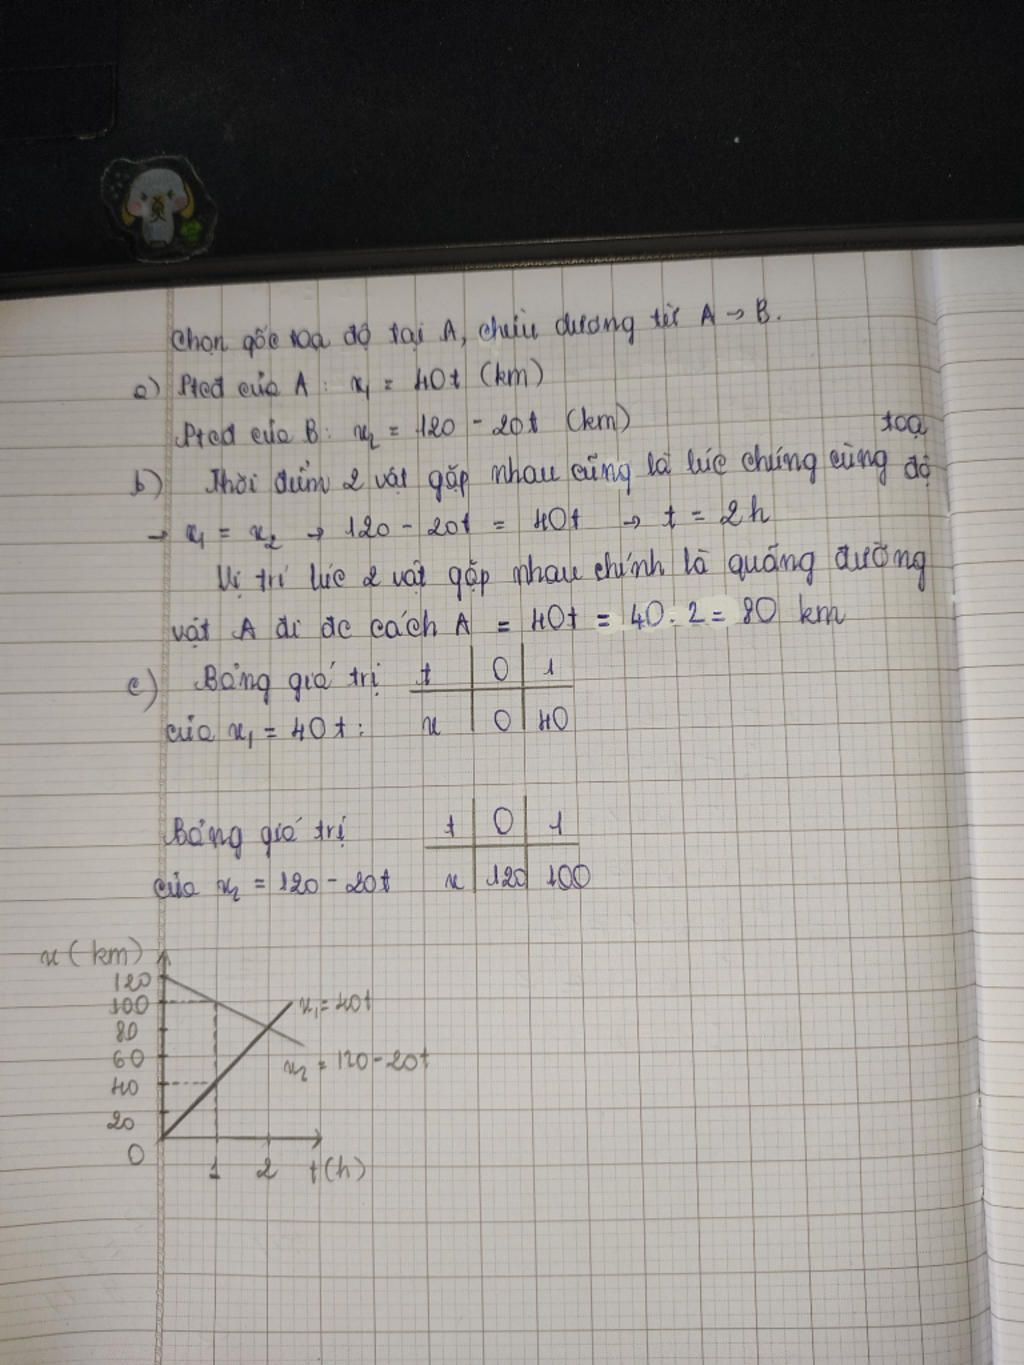 Chọn gốc toạ độ tại A, chiều dương từ A → B.
a) Ptcđ của A: x₁ = 40t (km)
Ptcđ của B: x₂ = 120 - 20t (km)
toạ
b) Thời điểm 2 vật gặp nhau cũng là lúc chúng cùng độ
→ x₁ = x₂ → 120 - 20t = 40t → t = 2h
Vị trí lúc 2 vật gặp nhau chính là quãng đường
vật A đi đc cách A = 40t = 40.2 = 80 km
c) Bảng giá trị t 0 1
của x₁ = 40t: x 0 40
Bảng giá trị t 0 1
của x₂ = 120 - 20t x 120 100
x (km)
120
100 x₁ = 40t
80
60 x₂ = 120 - 20t
40
20
0 1 2 t(h)